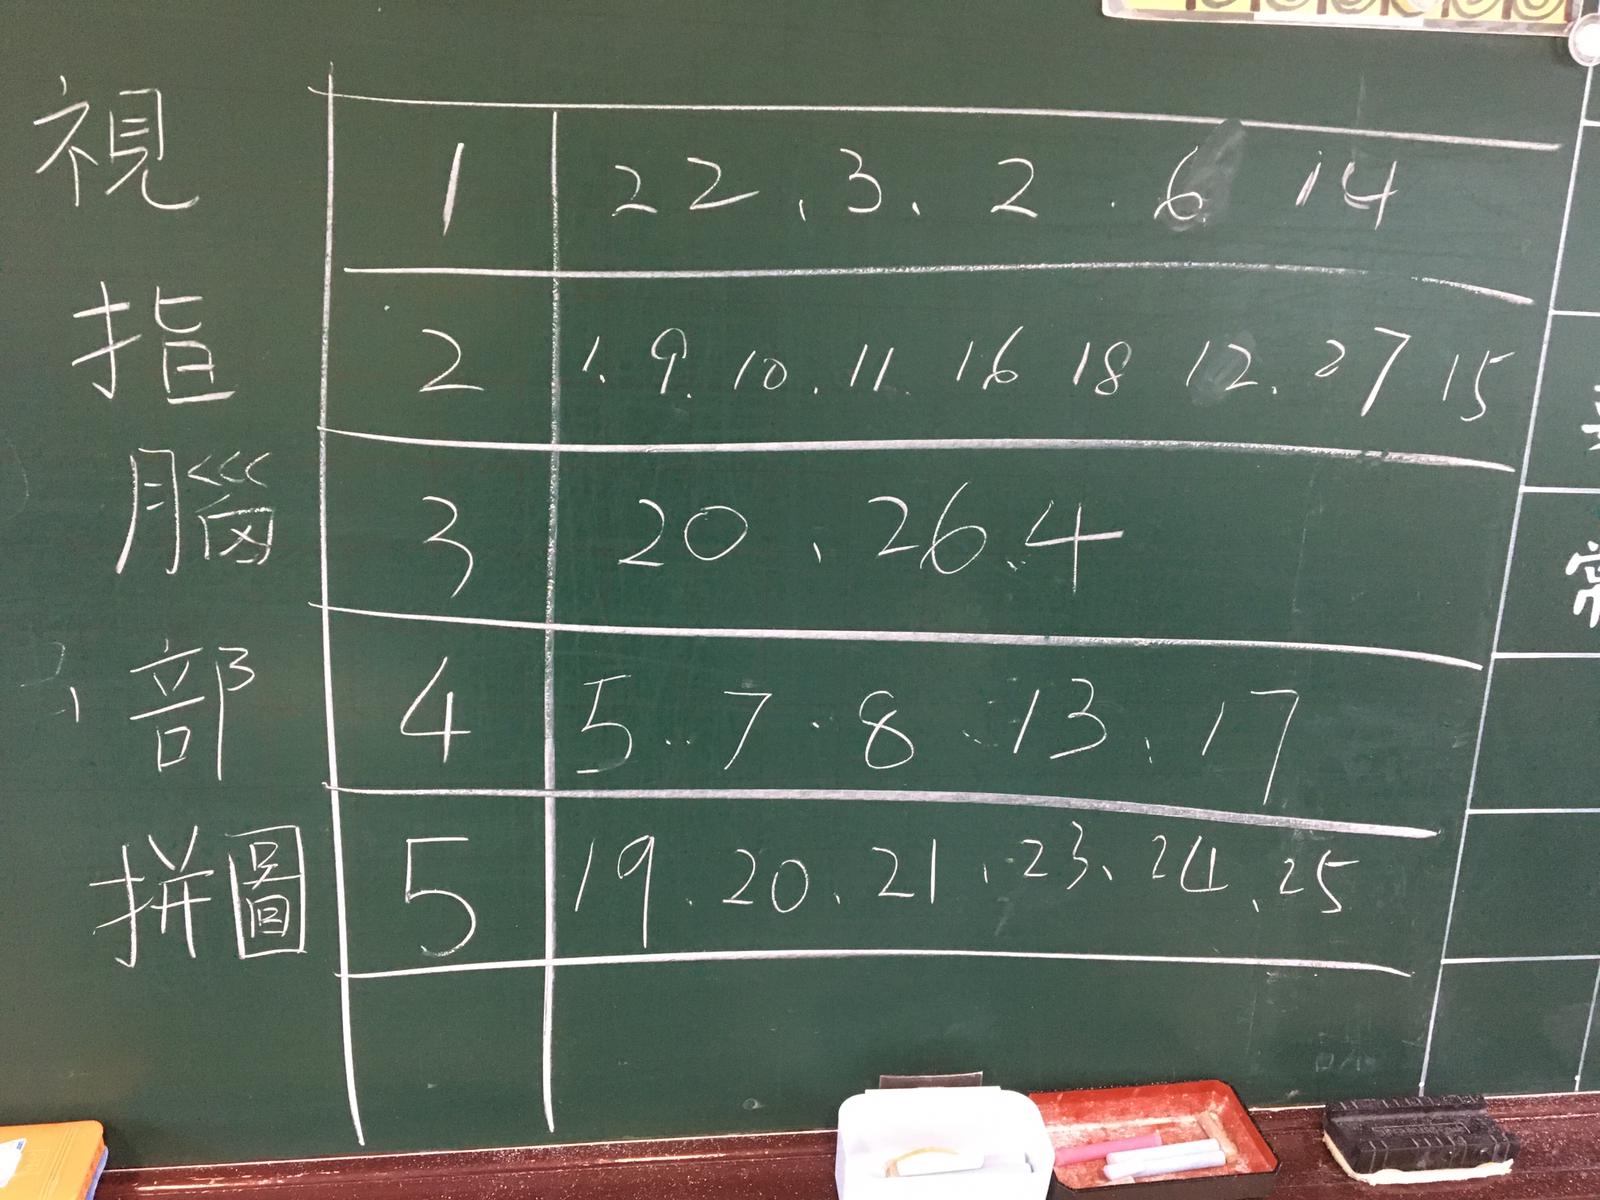 視 1 22、3、2、6 14
指 2 1.9.10.11.16 18 12.27 15
腦 3 20、26.4
部 4 5..7.8.13.17
拼圖 5 19.20.21.23、24.25